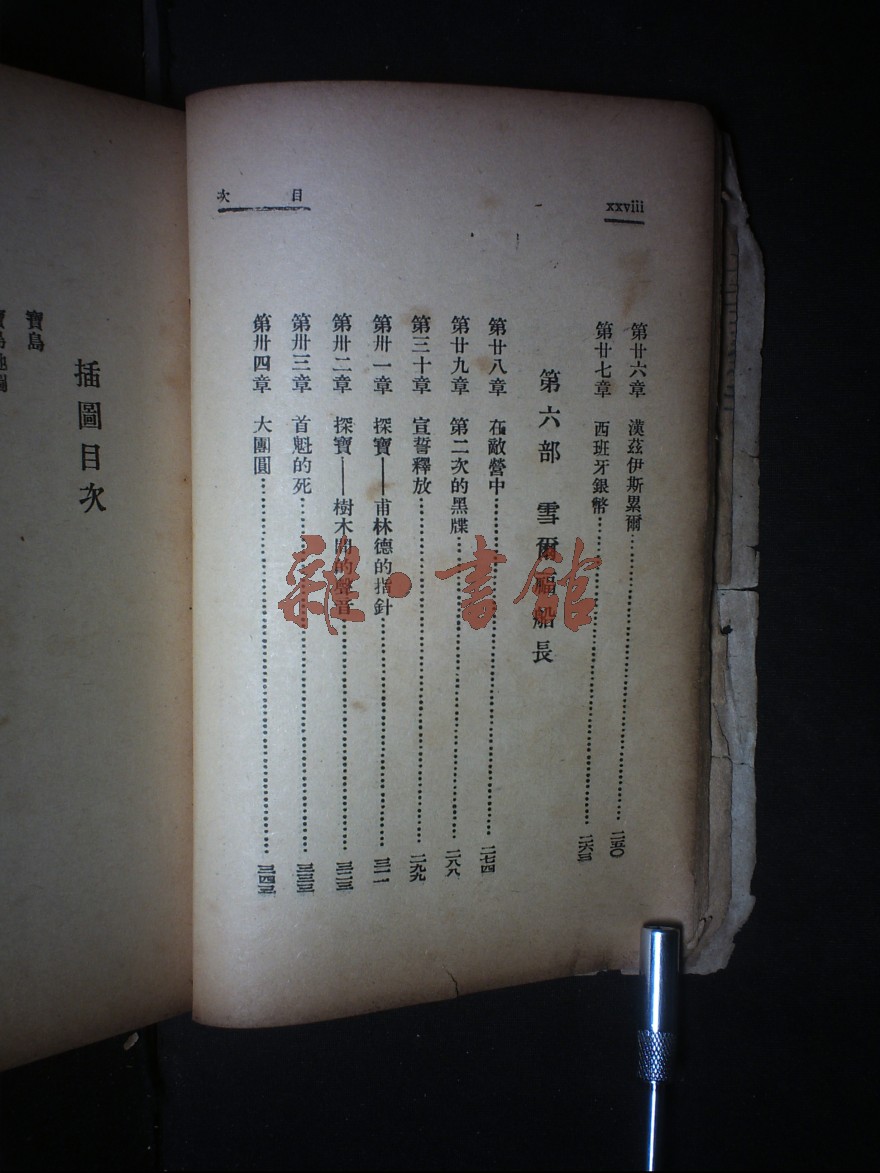 xxviii
目次
第廿六章 漢茲伊斯累爾……二五〇
第廿七章 西班牙銀幣……二六三
第六部 雪爾福船長
第廿八章 在敵營中……二七四
第廿九章 第二次的黑牒……二八八
第三十章 宣誓釋放……二九九
第卅一章 探寶——甫林德的指針……三一一
第卅二章 探寶——樹木間的聲音……三二三
第卅三章 首魁的死……三三三
第卅四章 大團圓……三四三
插圖目次
寶島
雜·書館